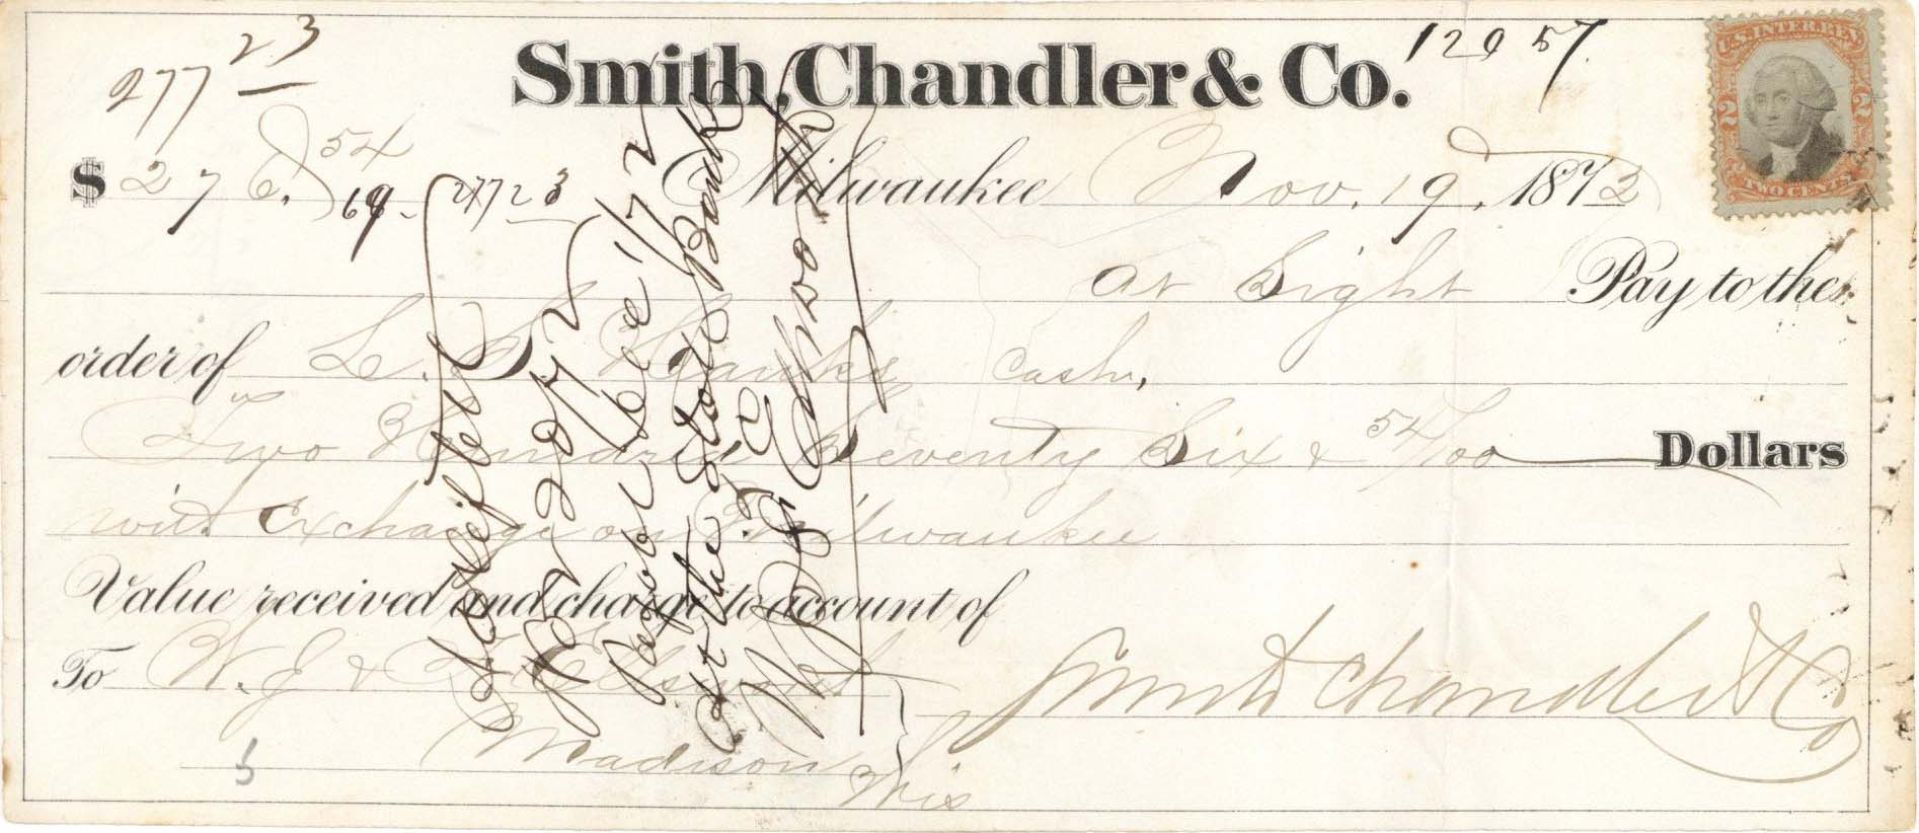 277 23
Smith, Chandler & Co.
12057.
U.S. INTER. REV.
2 2
TWO CENTS
$ 276.54 Milwaukee Nov. 19, 1872
69. 277 23
at Sight Pay to the
order of L. S. Hanks Cashr,
Two Hundred Seventy Six & 54/100 Dollars
with Exchange on Milwaukee
Value received and charge to account of
To W. J. & Ellsworth
Smith Chandler & Co
Madison
Wis
Accepted
Nov 20 72
Payable Dec 1/72
at the State Bank
W J & Ellsworth